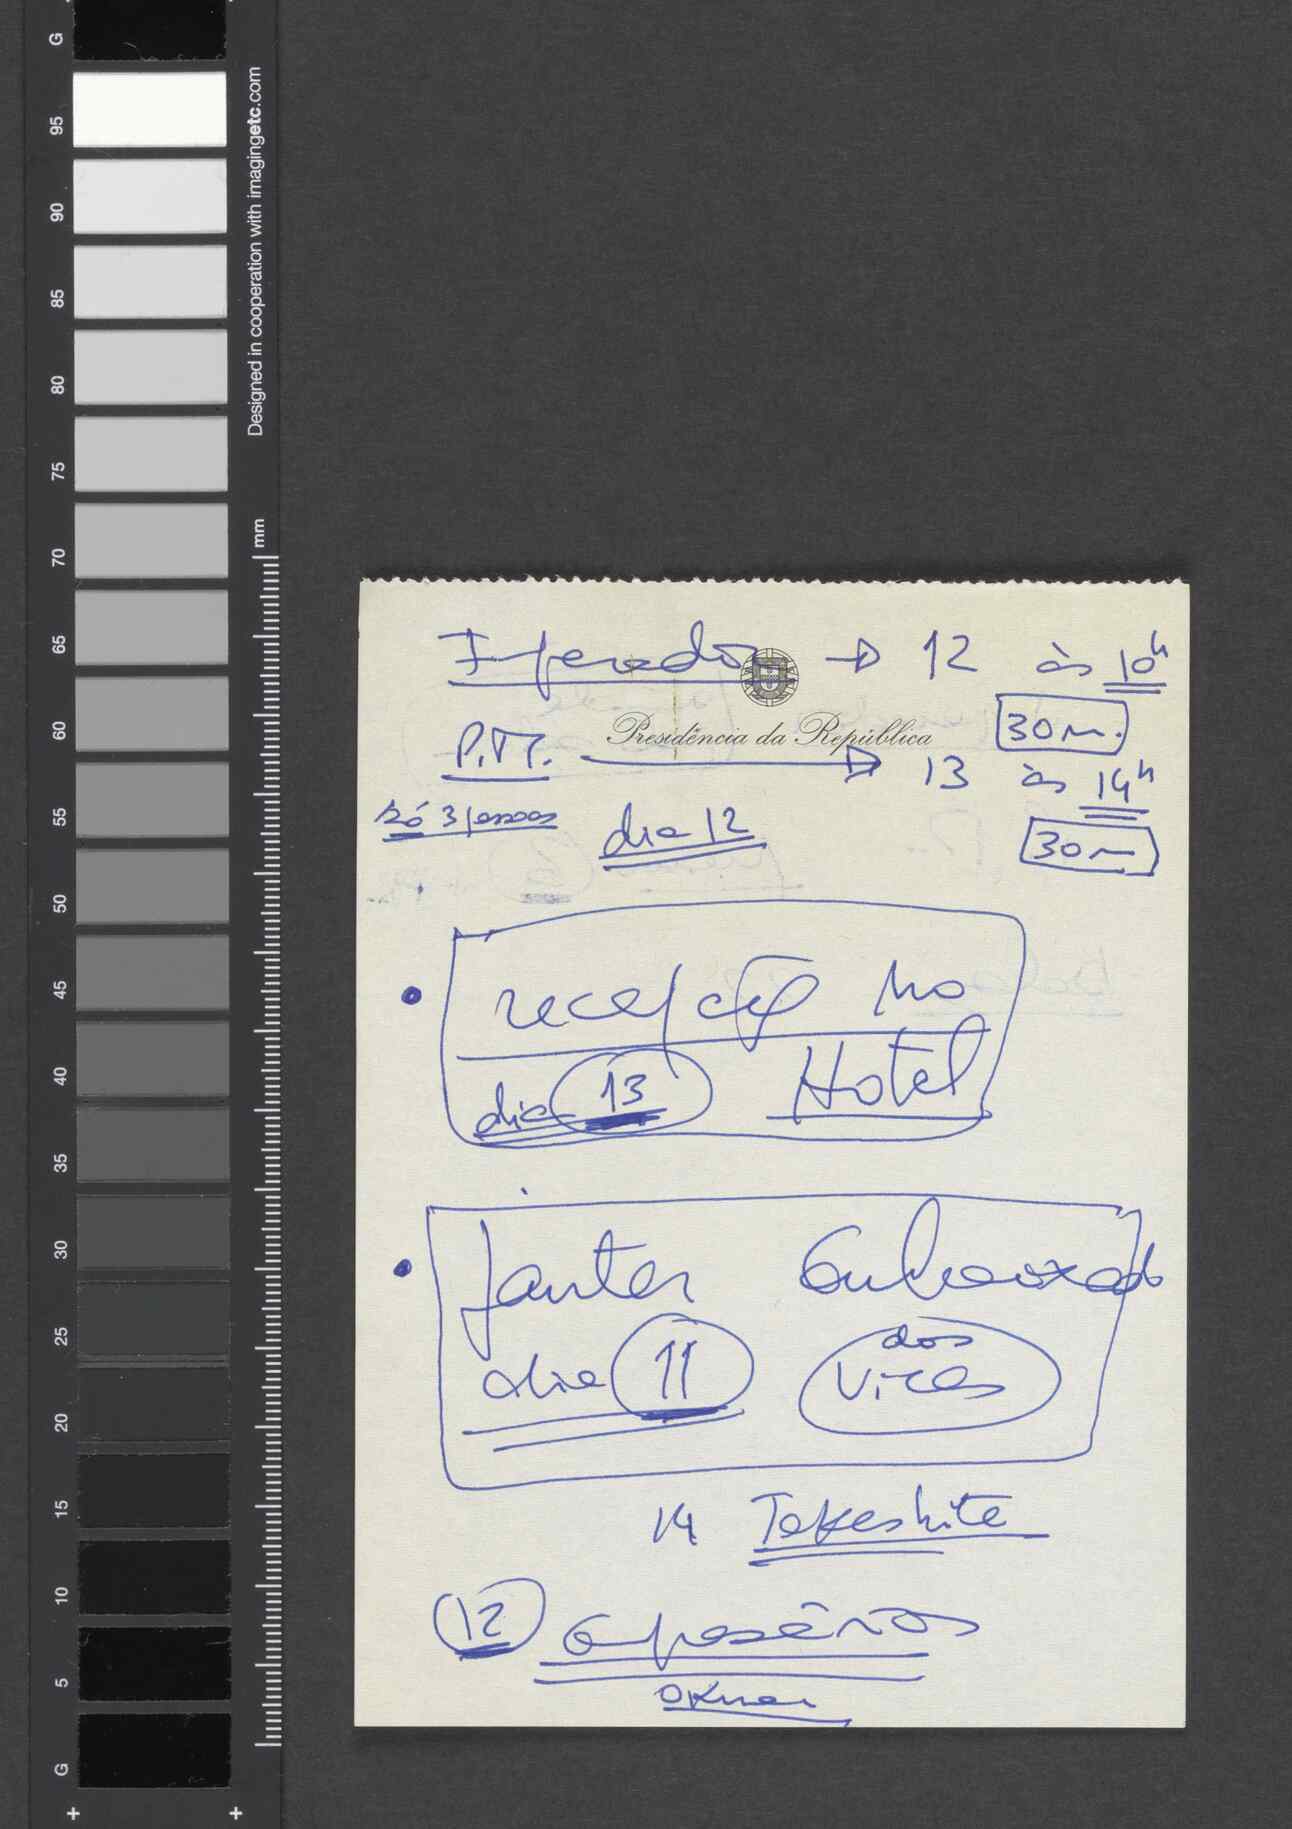 Imperador → 12 às 10h
30m.
Presidência da República
P.M. → 13 às 14h
só 3 pessoas
dia 12
30m
• recepção no
dia 13 Hotel
• Jantar Embaixada
dia 11 dos
Vices
14 Takeshita
12 empresários
Okura
G
95
90
85
80
75
70
65
60
55
50
45
40
35
30
25
20
15
10
5
G
Designed in cooperation with imagingetc.com
mm